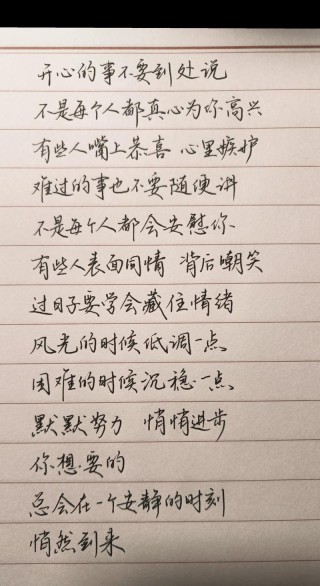 开心的事不要到处说
不是每个人都真心为你高兴
有些人嘴上恭喜 心里嫉妒
难过的事也不要随便讲
不是每个人都会安慰你
有些人表面同情 背后嘲笑
过日子要学会藏住情绪
风光的时候低调一点
困难的时候沉稳一点
默默努力 悄悄进步
你想要的
总会在一个安静的时刻
悄然到来